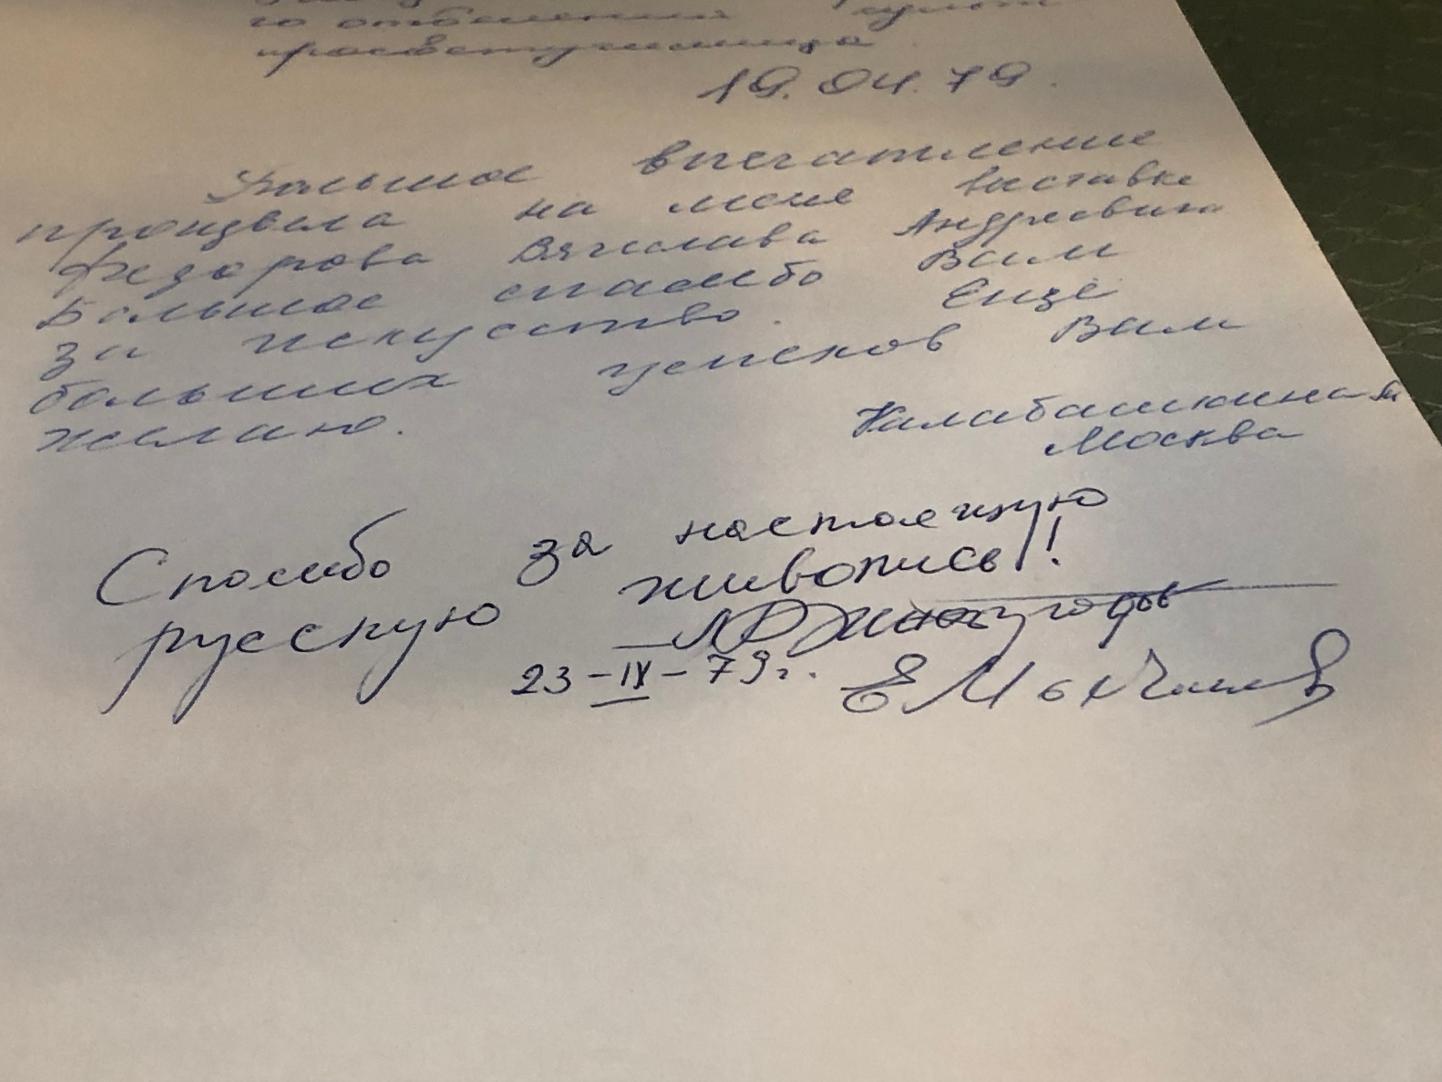 го отделения культ
просветучилища.
19.04.79.
Большое впечатление
произвела на меня выставка
Федорова Вячеслава Андреевича
Большое спасибо Вам
за искусство. Ещё
больших успехов Вам
желаю.
Калабашкина
Москва
Спасибо за настоящую
русскую живопись!
23-IV-79г.